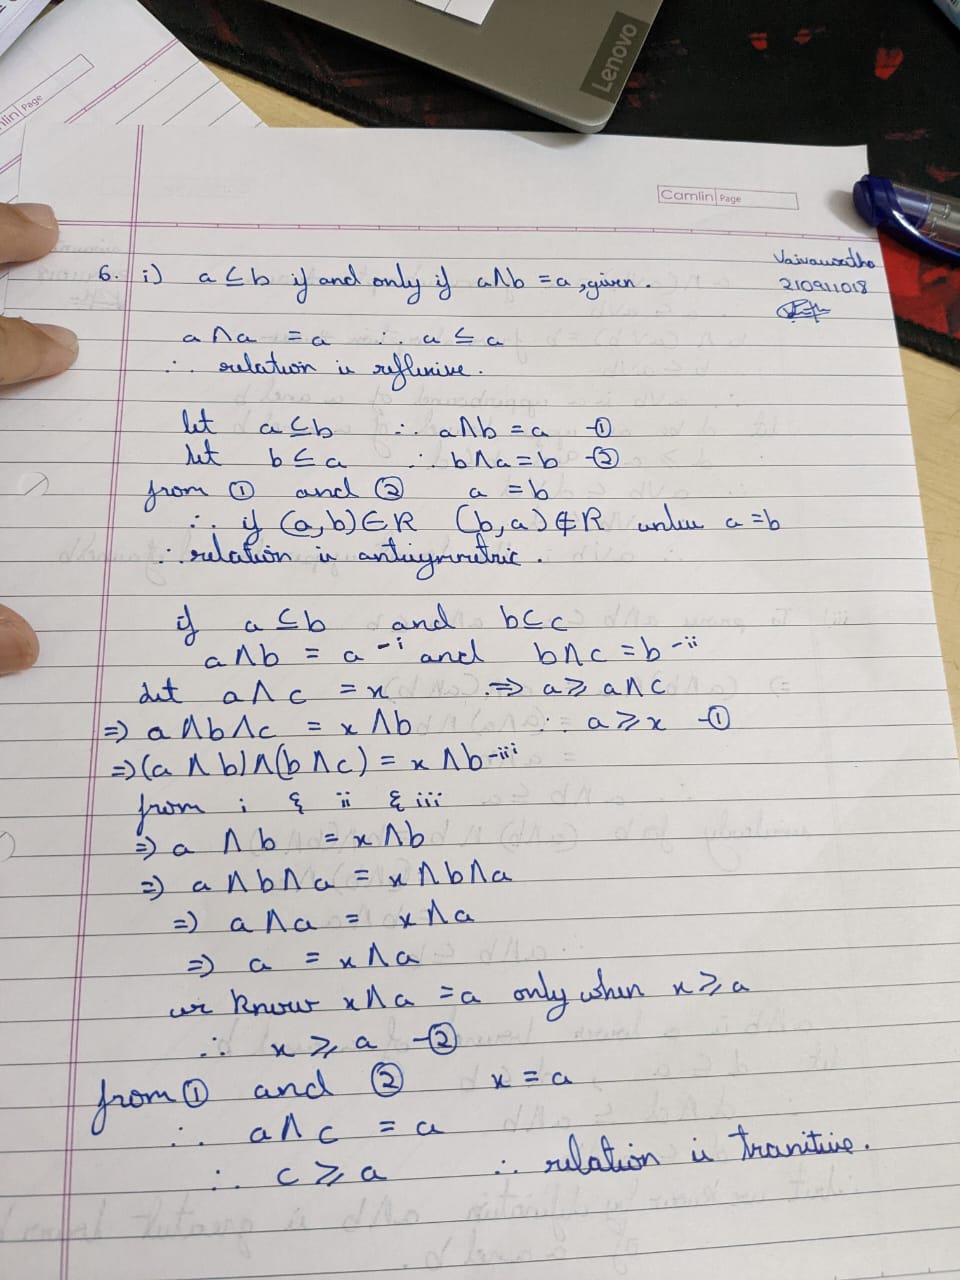 Lenovo
mlin Page
Camlin Page
Vaivaswatha
210911018
6. i) a ≤ b if and only if a∧b = a, given.
a∧a = a ∴ a ≤ a
∴ relation is reflexive.
let a ≤ b ∴ a∧b = a -①
let b ≤ a ∴ b∧a = b -②
from ① and ② a = b
∴ if (a,b)∈R (b,a)∉R unless a=b
∴ relation is antisymmetric.
if a ≤ b and b ≤ c
a∧b = a -i and b∧c = b -ii
let a∧c = x ⇒ a ⩾ a∧c
⇒ a∧b∧c = x∧b ∴ a ⩾ x -①
⇒ (a∧b)∧(b∧c) = x∧b -iii
from i & ii & iii
⇒ a∧b = x∧b
⇒ a∧b∧a = x∧b∧a
⇒ a∧a = x∧a
⇒ a = x∧a
we know x∧a = a only when x ⩾ a
∴ x ⩾ a -②
from ① and ② x = a
∴ a∧c = a
∴ c ⩾ a ∴ relation is transitive.